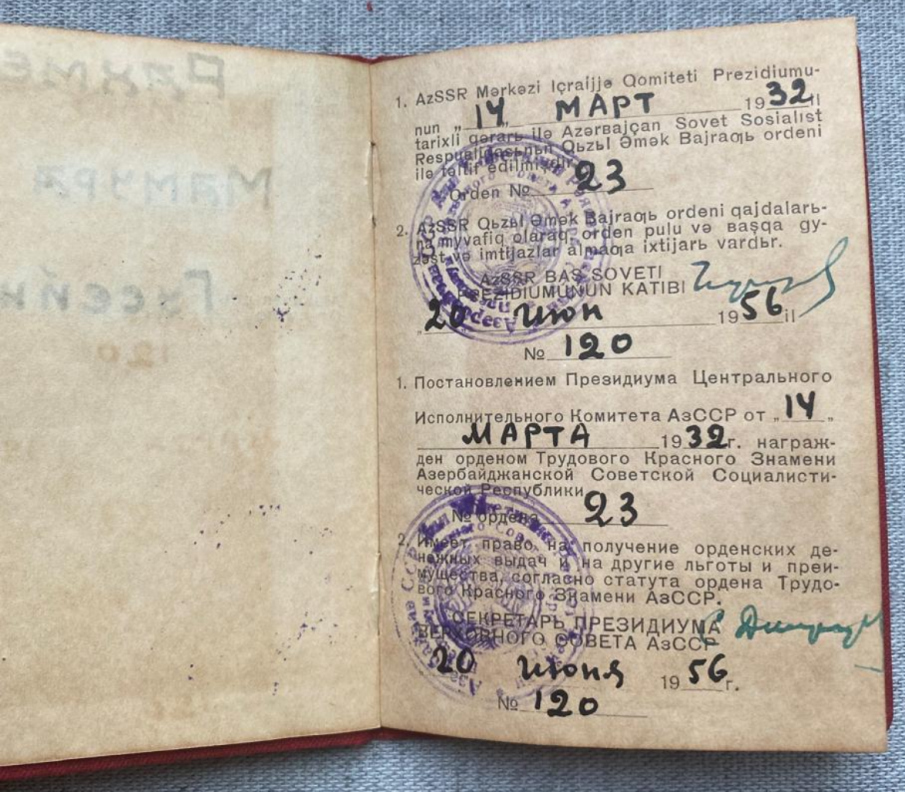 1. AzSSR Mərkəzi Içraijjə Qomiteti Prezidiumu-
nun „ 14 „ МАРТ 1932 il
tarixli qərarь ilə Azərbajçan Sovet Sosialist
Respublikasьnьn Qьzьl Əmək Bajraƣь ordeni
ilə təltif edilmişdir.
Orden № 23
2. AzSSR Qьzьl Əmək Bajraƣь ordeni qajdalarь-
na myvafiq olaraq, orden pulu və başqa gy-
zəşt və imtijazlar almaƣa ixtijarь vardьr.
AzSSR BAŞ SOVETI
PREZIDIUMUNUN KATIBI
„ 20 Июн 1956 il
№ 120
1. Постановлением Президиума Центрального
Исполнительного Комитета АзССР от „ 14 „
МАРТА 1932 г. награж-
ден орденом Трудового Красного Знамени
Азербайджанской Советской Социалисти-
ческой Республики
№ ордена 23
2. Имеет право на получение орденских де-
нежных выдач и на другие льготы и преи-
мущества, согласно статута ордена Трудо-
вого Красного Знамени АзССР.
СЕКРЕТАРЬ ПРЕЗИДИУМА
ВЕРХОВНОГО СОВЕТА АзССР
20 Июня 1956 г.
№ 120